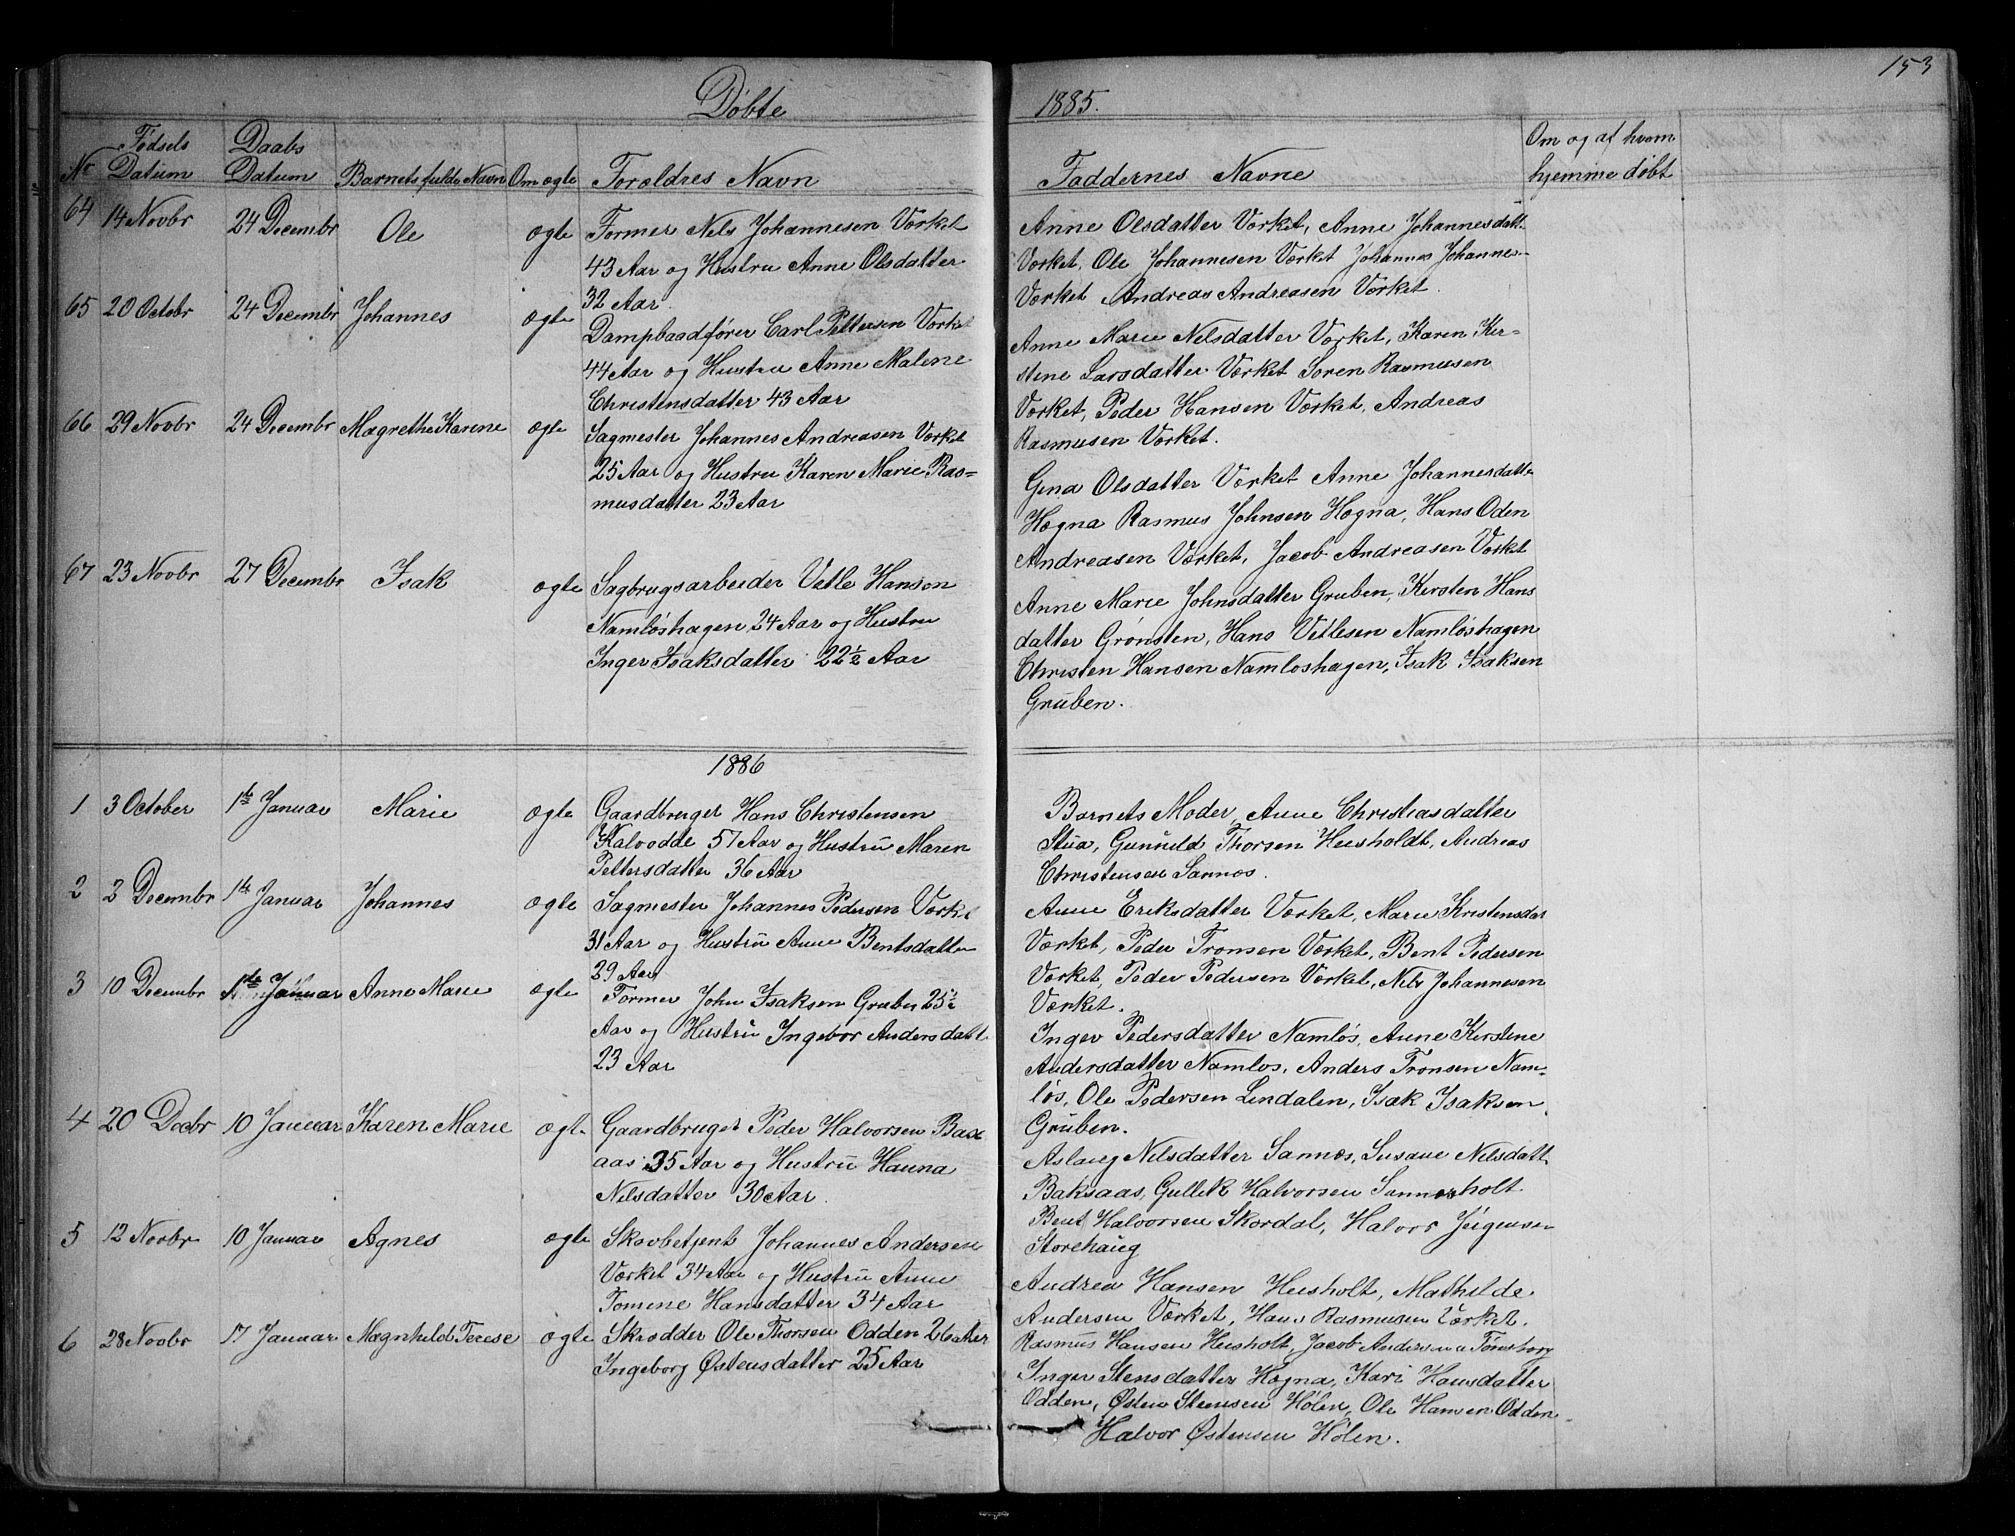 153
Døbte 1885.
Nr Fødsels Datum Daabs Datum Barnets fulde Navn Om ægte Forældres Navn Faddernes Navne Om og af hvem hjemmedøbt
64 14 Novbr 24 Decembr Ole ægte Former Nels Johannesen Værket
43 Aar og Hustru Anne Olsdatter
32 Aar
Anne Olsdatter Værket, Anne Johannesdatt.
Værket, Ole Johannesen Værket Johannes Johannes-
Værket Andreas Andreasen Værket.
65 20 Octobr 24 Decembr Johannes ægte Dampbaadfører Carl Pettersen Værket
44 Aar og Hustru Anne Malene
Christensdatter 43 Aar
Anne Marie Nelsdatter Værket, Karen Ker-
stene Larsdatter Værket Søren Rasmusen
Værket, Peder Hansen Værket, Andreas
Rasmusen Værket.
66 29 Novbr 24 Decembr Magrethe Karene ægte Sagmester Johannes Andreasen Værket
25 Aar og Hustru Karen Marie Ras-
musdatter 23 Aar
Gena Olsdatter Værket Anne Johannesdatte
Hægna Rasmus Johnsen Hægna, Hans Oden
Andreasen Værket, Jacob Andreasen Værket
67 23 Novbr 27 Decembr Isak ægte Sagbrugsarbeider Vetle Hansen
Namløshagen 24 Aar og Hustru
Inger Isaksdatter 22½ Aar
Anne Marie Johnsdatter Gruben, Kersten Hans
datter Grønsten, Hans Vetlesen Namløshagen
Christen Hansen Namløshagen, Isak Isaksen
Gruben.
1886
1 3 October 1te Januar Marie ægte Gaardbruger Hans Christensen
Kalvodde 57 Aar og Hustru Maren
Pettersdatter 36 Aar
Barnets Moder, Anne Christiasdatter
Stua, Gunnild Thorsen Heisholdt, Andreas
Christensen Sannes.
2 2 Decembr 1te Januar Johannes ægte Sagmester Johannes Pedersen Værket
31 Aar og Hustru Anne Bentsdatter
29 Aar
Anne Eriksdatter Værket, Marie Kristensdat
Værket, Peder Tronsen Værket, Bent Pedersen
Værket, Peder Pedersen Værket, Nels Johannesen
Værket.
3 10 Decembr 1te Januar Anne Marie ægte Former John Isaksen Gruben 25½
Aar og Hustru Ingebor Andersdatt.
23 Aar
Inger Pedersdatter Namløs, Anne Kerstene
Andersdatter Namløs, Anders Tronsen Nam-
løs, Ole Pedersen Lendalen, Isak Isaksen
Gruben.
4 20 Decbr 10 Januar Karen Marie ægte Gaardbruger Peder Halvorsen Bax
aas 35 Aar og Hustru Hanna
Nelsdatter 30 Aar.
Aslaug Nilsdatter Sannes, Susane Nelsdatt.
Baksaas, Gullek Halvorsen Sannesholt
Bent Halvorsen Skordal, Halvor Jørgensen
Storehaug
5 12 Novbr 10 Januar Agnes ægte Skovbetjent Johannes Andersen
Værket 34 Aar og Hustru Anne
Tomine Hansdatter 34 Aar
Andrea Hansen Heisholt, Mathilde
Andersen Værket, Hans Rasmusen Værket.
Rasmus Hansen Heisholt, Jacob Andersen Tønsberg
6 28 Novbr 17 Januar Magnhild Terese ægte Skrædder Ole Thorsen Odden 26 Aar
Ingeborg Østensdatter 25 Aar
Inger Stensdatter Hægna, Kari Hansdatter
Odden, Østen Steensen Hølen, Ole Hansen Odden
Halvor Østensen Hølen.